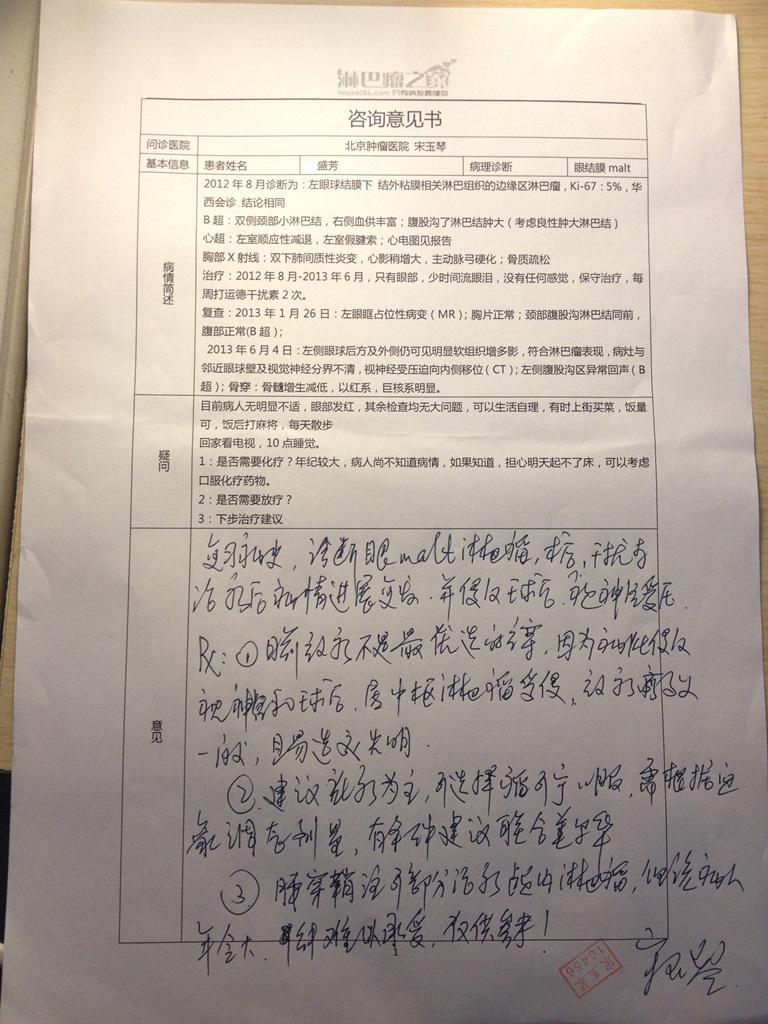 淋巴瘤之家
house086.com 只有病友最懂你
咨询意见书
问诊医院 北京肿瘤医院 宋玉琴
基本信息 患者姓名 盛芳 病理诊断 眼结膜 malt
病情简述
2012 年 8 月诊断为：左眼球结膜下 结外粘膜相关淋巴组织的边缘区淋巴瘤，Ki-67：5%，华
西会诊 结论相同
B 超：双侧颈部小淋巴结，右侧血供丰富；腹股沟了淋巴结肿大（考虑良性肿大淋巴结）
心超：左室顺应性减退，左室假腱索；心电图见报告
胸部 X 射线：双下肺间质性炎变，心影稍增大，主动脉弓硬化；骨质疏松
治疗：2012 年 8 月-2013 年 6 月，只有眼部，少时间流眼泪，没有任何感觉，保守治疗，每
周打运德干扰素 2 次。
复查：2013 年 1 月 26 日：左眼眶占位性病变（MR）；胸片正常；颈部腹股沟淋巴结同前，
腹部正常(B 超)；
2013 年 6 月 4 日：左侧眼球后方及外侧仍可见明显软组织增多影，符合淋巴瘤表现，病灶与
邻近眼球壁及视觉神经分界不清，视神经受压迫向内侧移位（CT）；左侧腹股沟区异常回声（B
超）；骨穿：骨髓增生减低，以红系，巨核系明显。
疑问
目前病人无明显不适，眼部发红，其余检查均无大问题，可以生活自理，有时上街买菜，饭量
可，饭后打麻将，每天散步
回家看电视，10 点睡觉。
1：是否需要化疗？年纪较大，病人尚不知道病情，如果知道，担心明天起不了床，可以考虑
口服化疗药物。
2：是否需要放疗？
3：下步治疗建议
意见
复习病史，诊断眼malt淋巴瘤，干扰素
治疗后病情进展，并侵及球后，视神经受压.
Rx：① 目前放疗不是最优选的选择，因为病灶侵及
视神经和球后，属中枢淋巴瘤受侵，放疗疗效
一般，且易造成失明.
② 建议化疗为主，可选择瘤可宁口服，需根据血
象调整剂量，有条件建议联合美罗华
③ 腰穿鞘注可部分治疗淋巴瘤，但该病人
年令大，难以承受，仅供参考！
宋玉琴